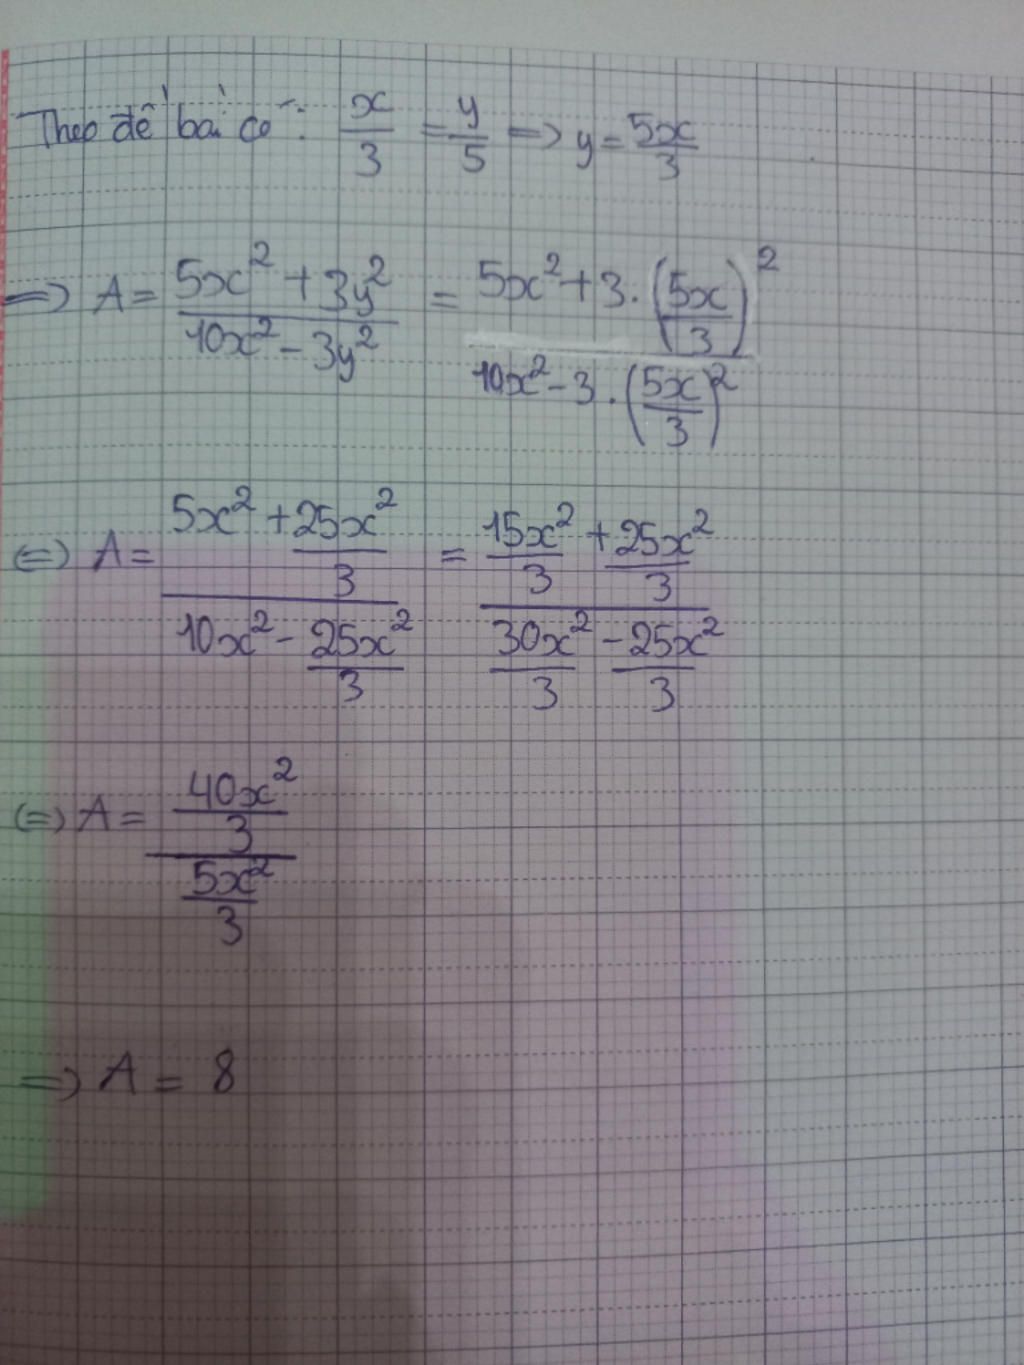 Theo đề bài có: x/3 = y/5 => y = 5x/3
=> A = (5x² + 3y²)/(10x² - 3y²) = (5x² + 3.(5x/3)²)/(10x² - 3.(5x/3)²)
(=) A = (5x² + 25x²/3)/(10x² - 25x²/3) = (15x²/3 + 25x²/3)/(30x²/3 - 25x²/3)
(=) A = (40x²/3)/(5x²/3)
=> A = 8